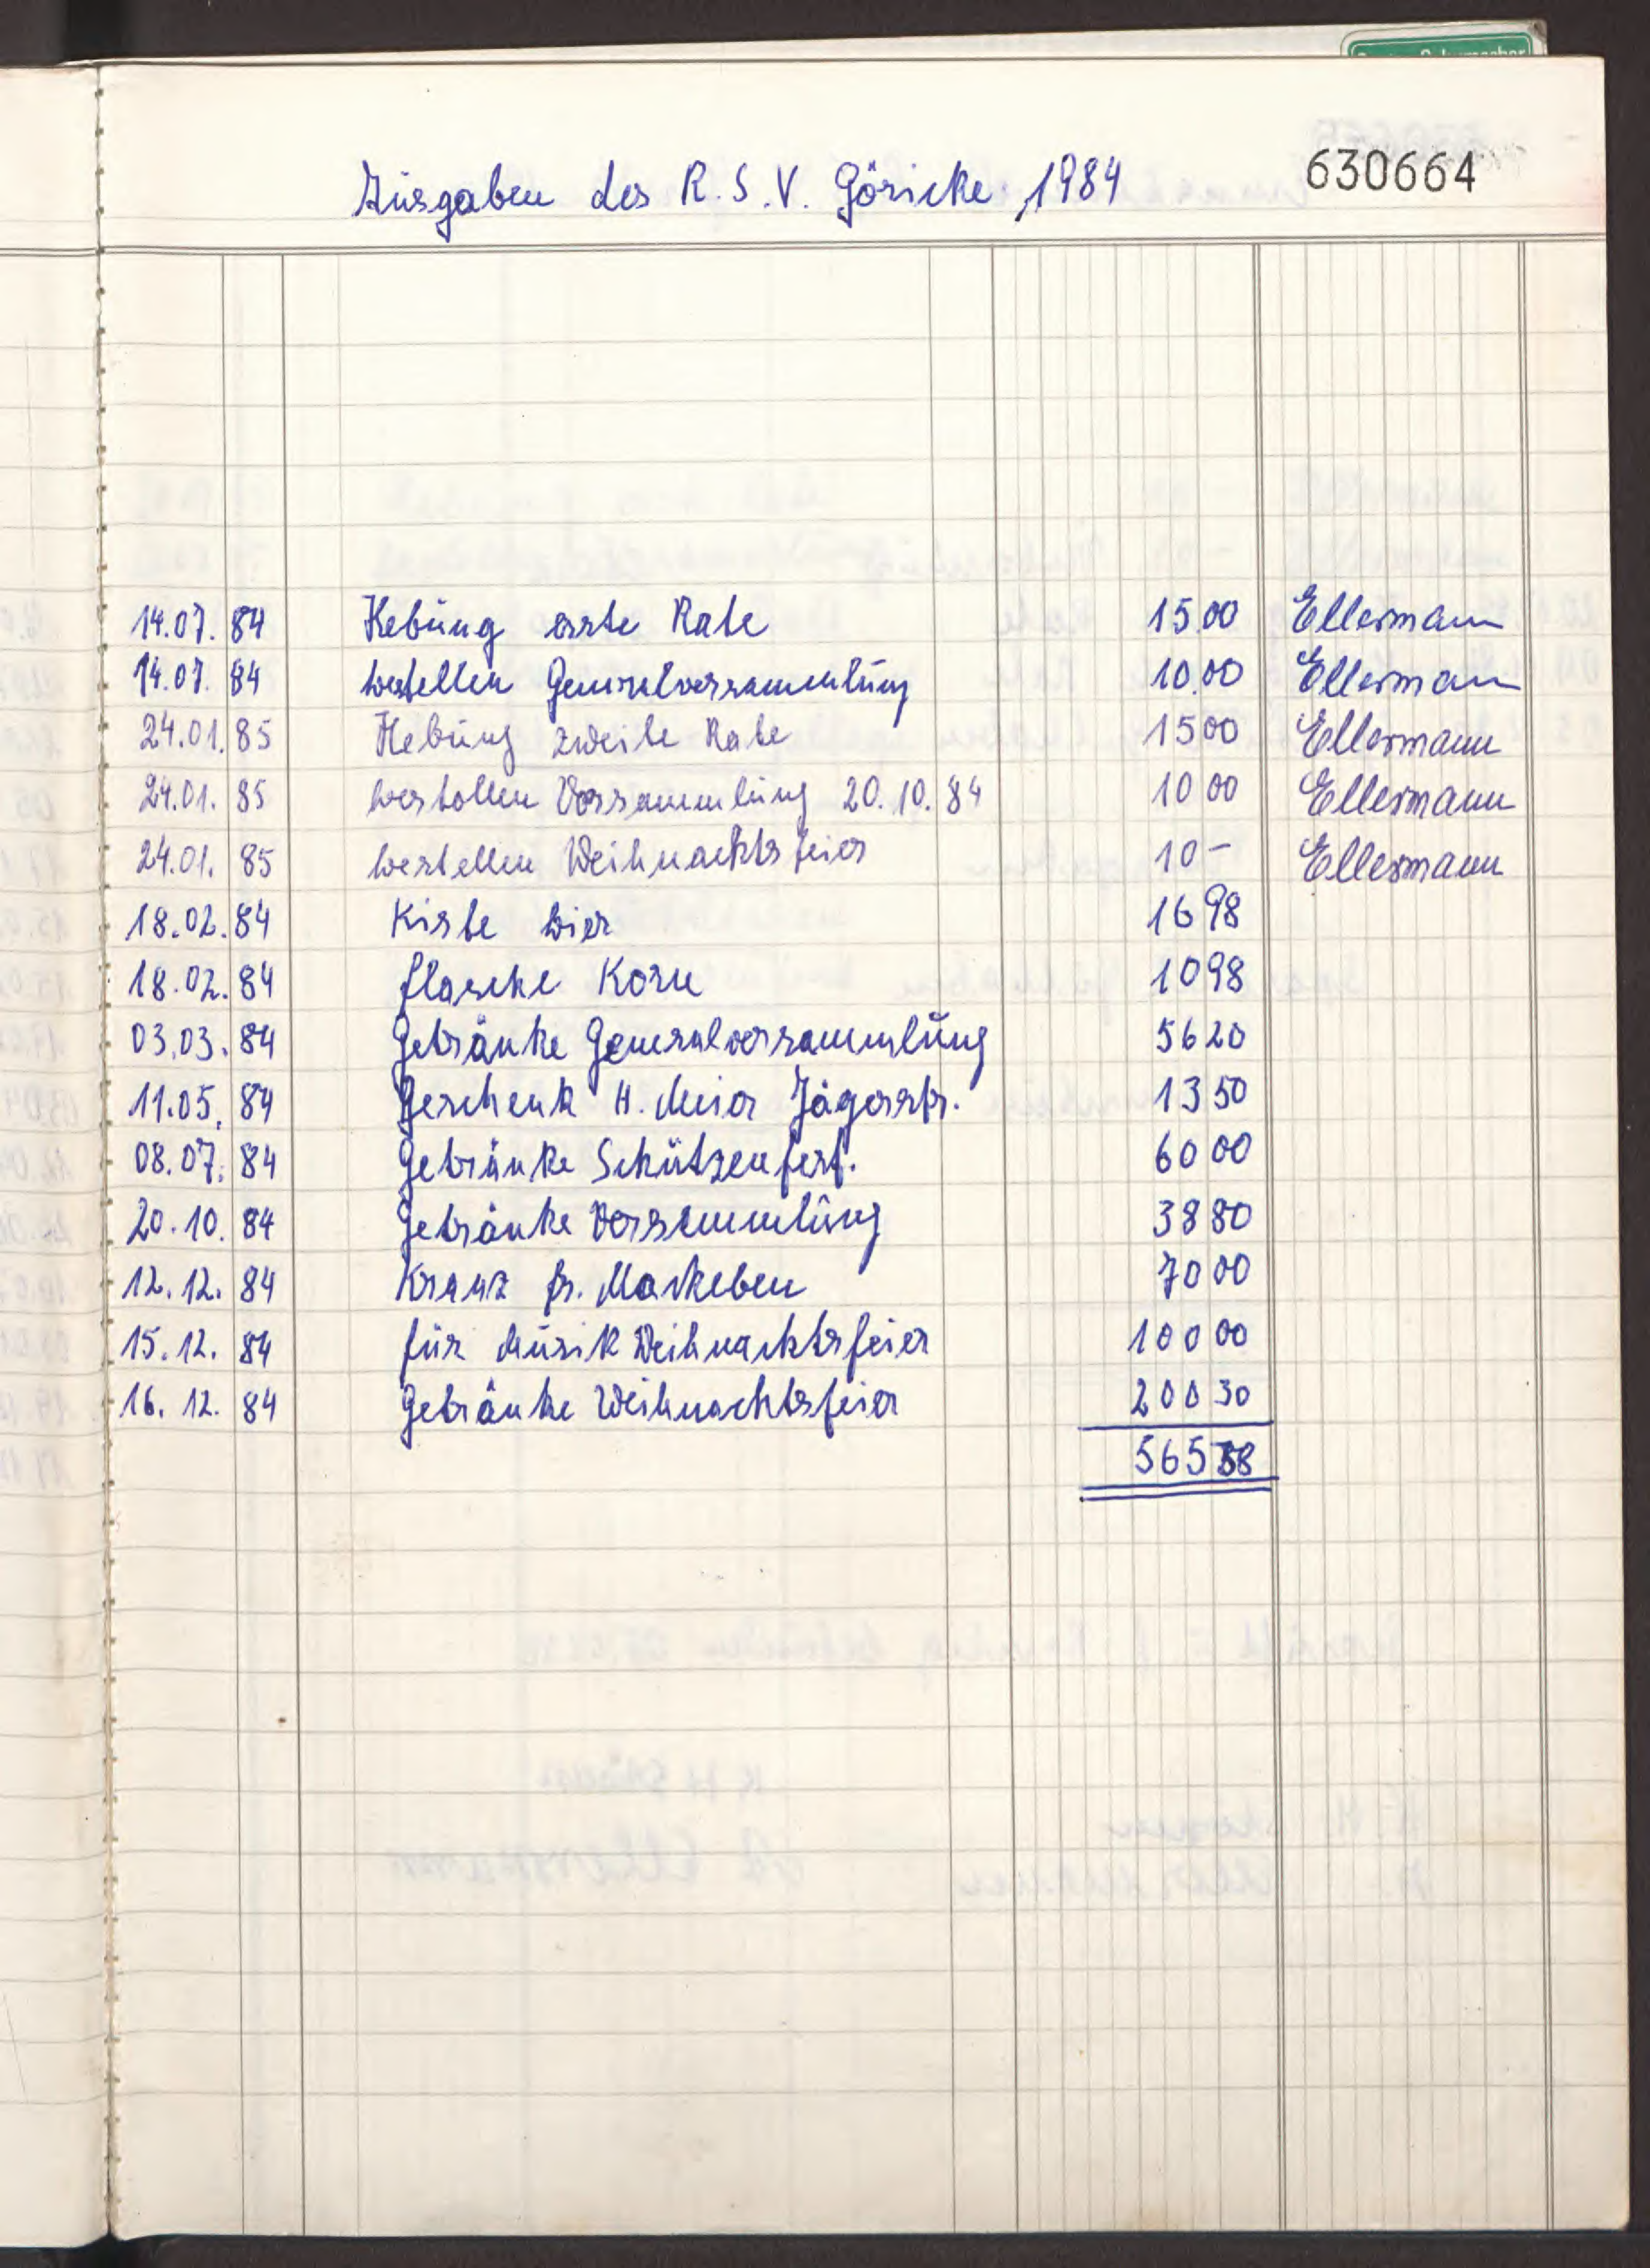 Ausgaben des R.S.V. Göricke 1984 630664
14.07. 84 Hebung erste Rate 15.00 Ellermann
14.07. 84 bestellen Generalversammlung 10.00 Ellermann
24.01. 85 Hebung zweite Rate 15 00 Ellermann
24.01. 85 bestellen Versammlung 20.10.84 10 00 Ellermann
24.01. 85 bestellen Weihnachtsfeier 10 - Ellermann
18.02. 84 Kiste bier 16 98
18.02. 84 flasche Korn 10 98
03.03. 84 Getränke Generalversammlung 56 20
11.05. 84 Geschenk H. Meier Jägerstr. 13 50
08.07. 84 Getränke Schützenfest. 60 00
20.10. 84 Getränke Versammlung 38 80
12.12. 84 Kranz fr. 70 00
15.12. 84 für Musik Weihnachtsfeier 100 00
16.12. 84 Getränke Weihnachtsfeier 200 30
565